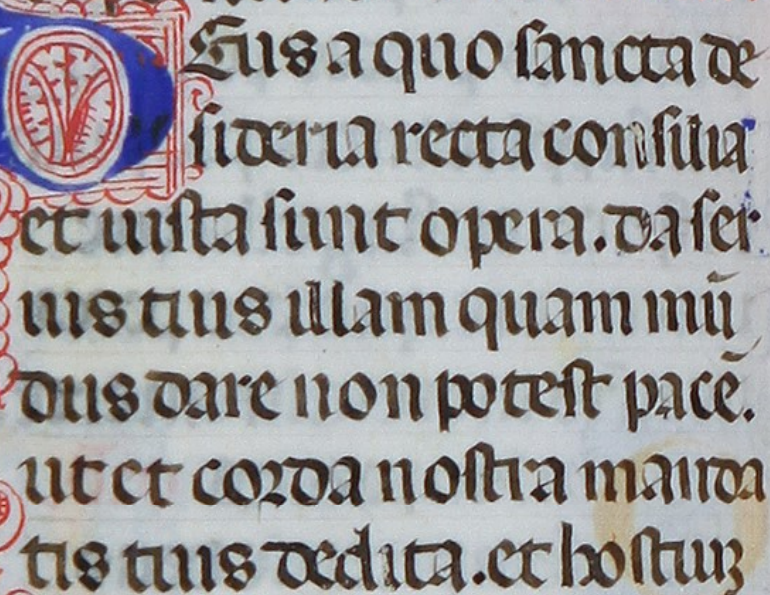 DEus a quo sancta de
sideria recta consilia
et iusta sunt opera. da ser
uis tuis illam quam mū
dus dare non potest pacē.
ut et corda nostra manda
tis tuis dedita. et hostiuꝫ